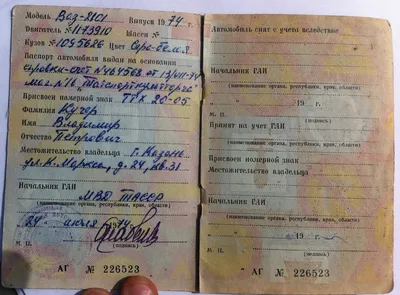 Модель Ваз-2101 Выпуск 1974 г.
Двигатель № 1173910 Шасси №
Кузов № 1095626 Цвет Серо-белая
Паспорт автомобиля выдан на основании
справки-счет № 464568 от 13/VII-74
маг. № 16
Присвоен номерной знак ТРК 20-05
Фамилия Кучер
Имя Владимир
Отчество Петрович
Местожительство владельца г. Казань
ул. К. Маркса, д. 24, кв. 31
Начальник ГАИ
МВД ТАССР
(наименование органа, республики, края, области)
24 июля 1974 г.
М. П. (подпись)
АГ № 226523
Автомобиль снят с учета вследствие
Начальник ГАИ
(наименование органа, республики, края, области)
19 г.
М. П. (подпись)
Принят на учет ГАИ
(наименование органа, республики, края, области)
Присвоен номерной знак
Местожительство владельца
Начальник ГАИ
(наименование органа, республики, края, области)
19 г.
М. П. (подпись)
АГ № 226523